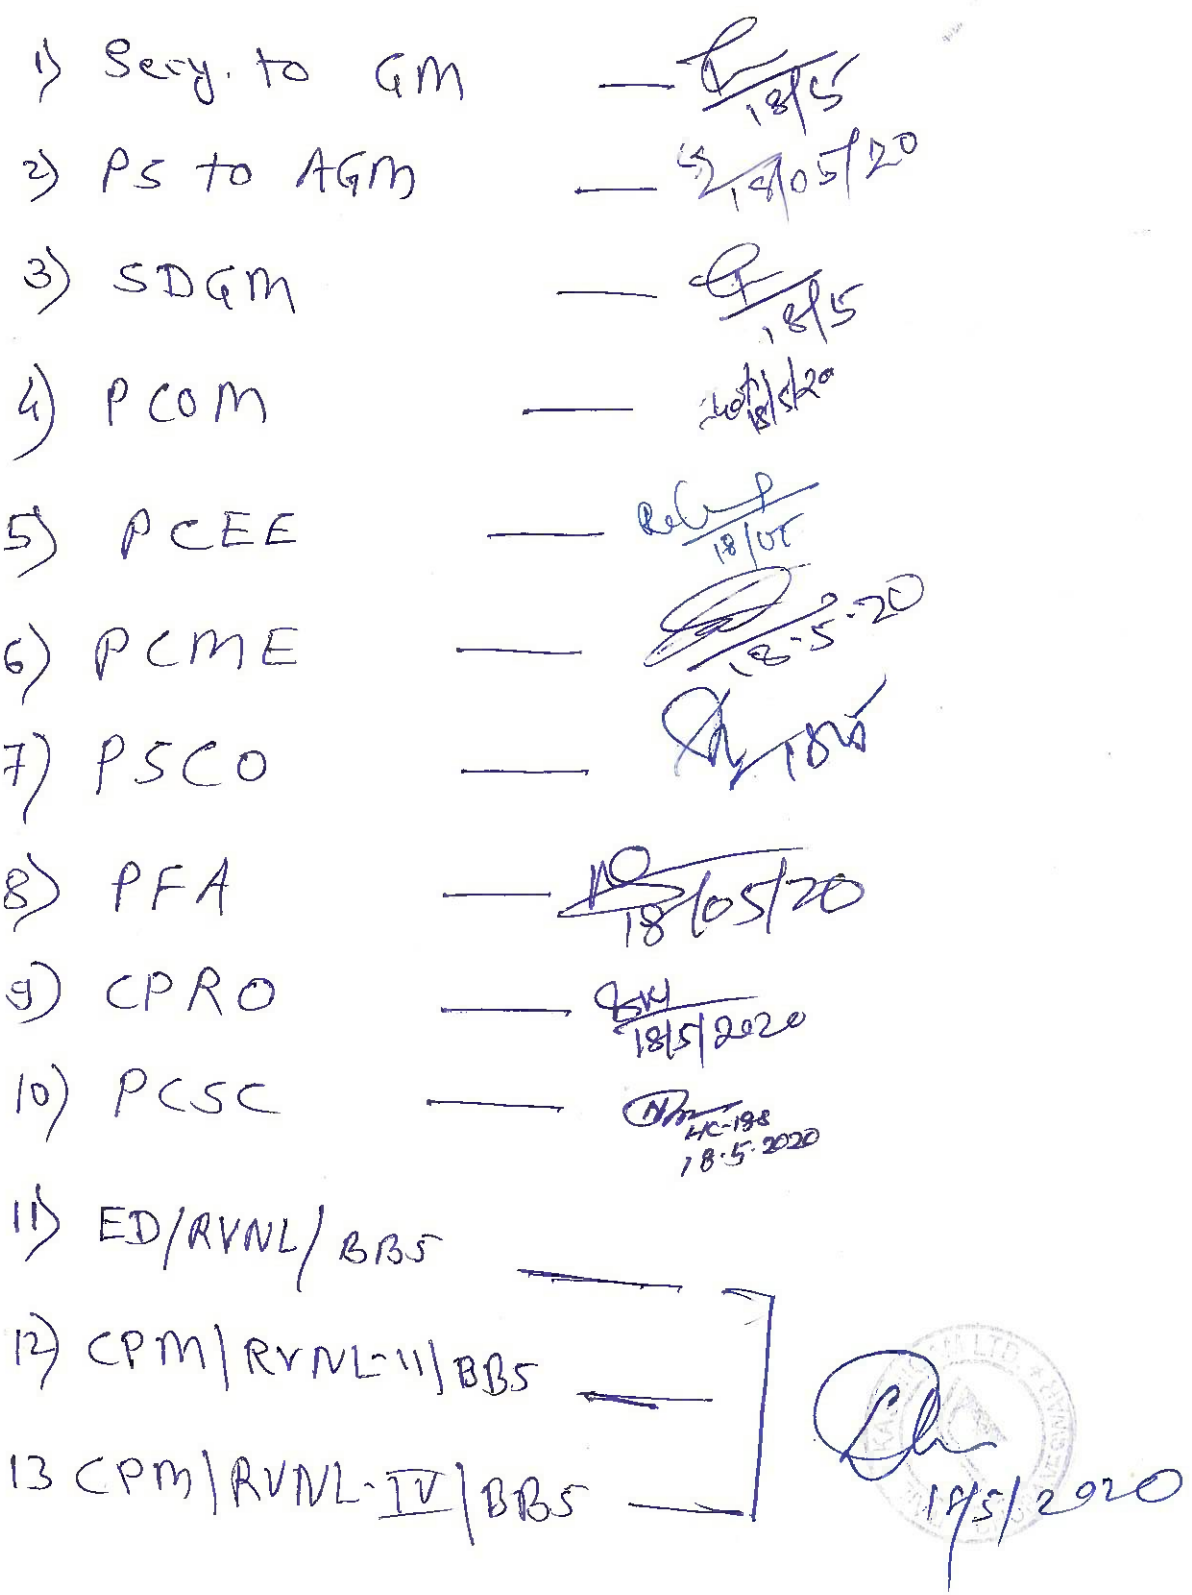 1) Secy. to GM — 18/5
2) PS to AGM — 18/05/20
3) SDGM — 18/5
4) PCOM — 18/5/20
5) PCEE — 18/05
6) PCME — 18-5-20
7) PSCO — 18/5
8) PFA — 18/05/20
9) CPRO — 18/5/2020
10) PCSC —
HC-198
18.5.2020
11) ED/RVNL/BBS —
12) CPM/RVNL-II/BBS —
13 CPM/RVNL-IV/BBS — 18/5/2020